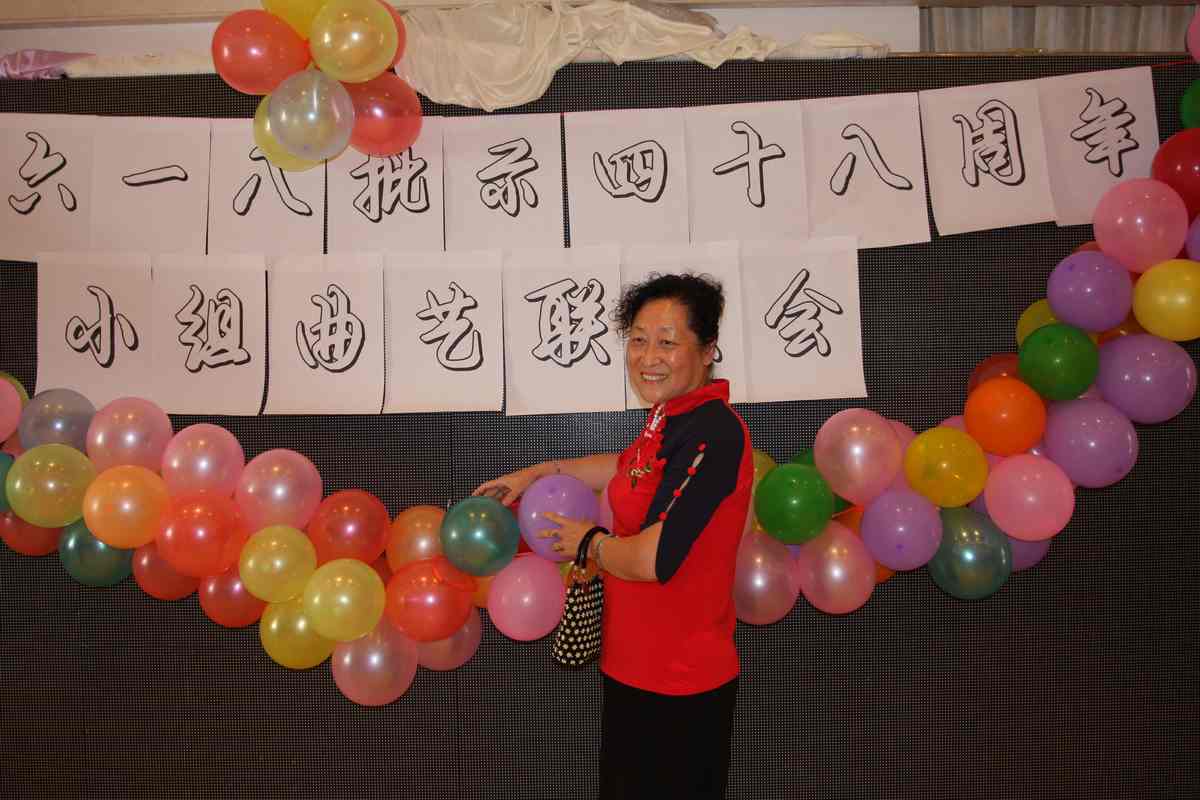 六一八批示四十八周年
小组曲艺联会